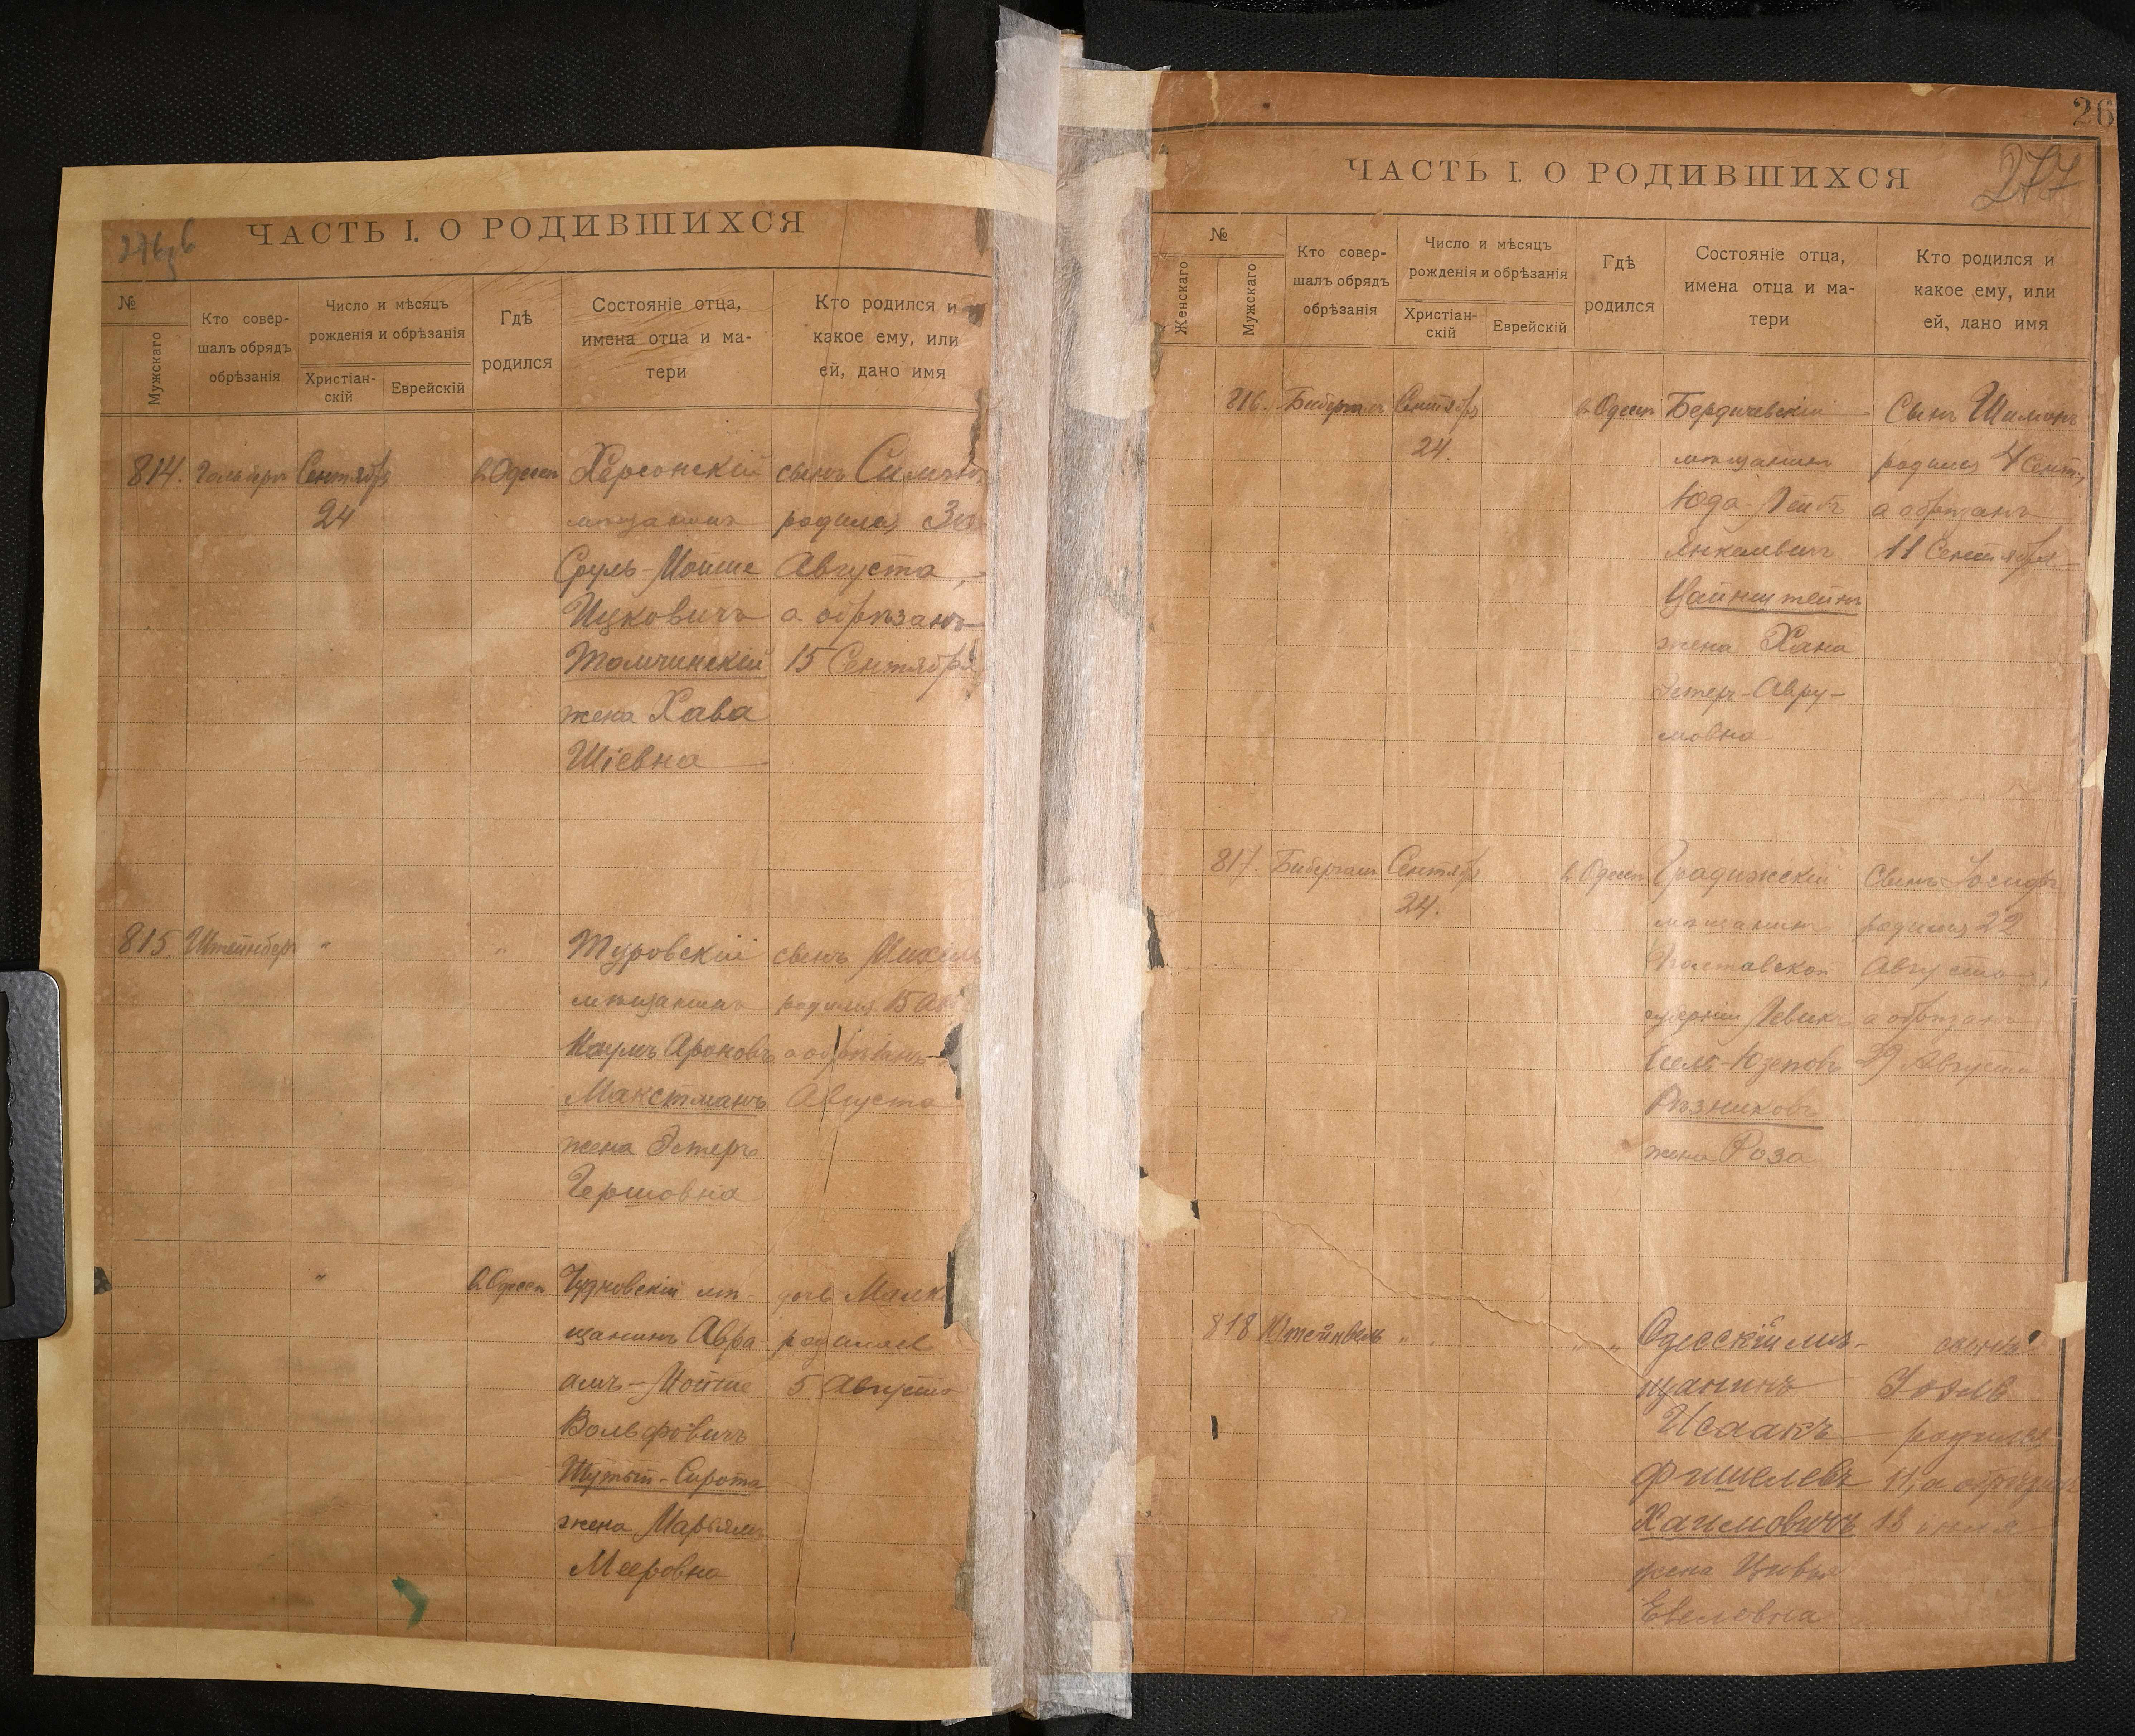 ЧАСТЬ I. О РОДИВШИХСЯ
№
Мужскаго
Кто совер-
шалъ обрядъ
обрѣзанія
Число и мѣсяцъ
рожденія и обрѣзанія
Христіан-
скій
Еврейскій
Гдѣ
родился
Состояніе отца,
имена отца и ма-
тери
Кто родился и
какое ему, или
ей, дано имя
814.
Сентябр
24
въ Одессѣ
Херсонскій
мѣщанинъ
Сруль-Мойше
Ицковичъ
Толчинскій
жена Хава
Шіевна
сынъ
родился 30
Августа,
а обрѣзанъ
15 Сентября
815.
Штейнберг
"
"
Туровскій
мѣщанинъ
Наумъ Ароновъ
Макстманъ
жена Эстеръ
Гершовна
сынъ
родился 15 Ав
а обрѣзанъ
Августа
"
въ Одессѣ
Чудновскій мѣ-
щанинъ Авра-
амъ-Мойше
Вольфовичъ
Сирота
жена Марьямъ
Мееровна
дочь
родилась
5 Августа
26
277
ЧАСТЬ I. О РОДИВШИХСЯ
№
Женскаго
Мужскаго
Кто совер-
шалъ обрядъ
обрѣзанія
Число и мѣсяцъ
рожденія и обрѣзанія
Христіан-
скій
Еврейскій
Гдѣ
родился
Состояніе отца,
имена отца и ма-
тери
Кто родился и
какое ему, или
ей, дано имя
816.
Сентябр
24.
въ Одессѣ
Бердичевскій
мѣщанинъ
Юда-Лейбъ
Янкелевичъ
Вайнштейнъ
жена Хана
Эстеръ-Авру-
мовна
Сынъ Шимонъ
родился 4 Сент.,
а обрѣзанъ
11 Сентября
817.
Сентябр
24.
въ Одессѣ
Градижскій
мѣщанинъ
Полтавской
губерніи
Рѣзниковъ
жена Роза
Сынъ Іосифъ
родился 22
Августа,
а обрѣзанъ
29 Августа
818
"
"
Одесскій мѣ-
щанинъ
Исаакъ
Фишелевъ
Хаимовичъ
жена Цивья
сынъ
родился
11, а обрѣзанъ
18